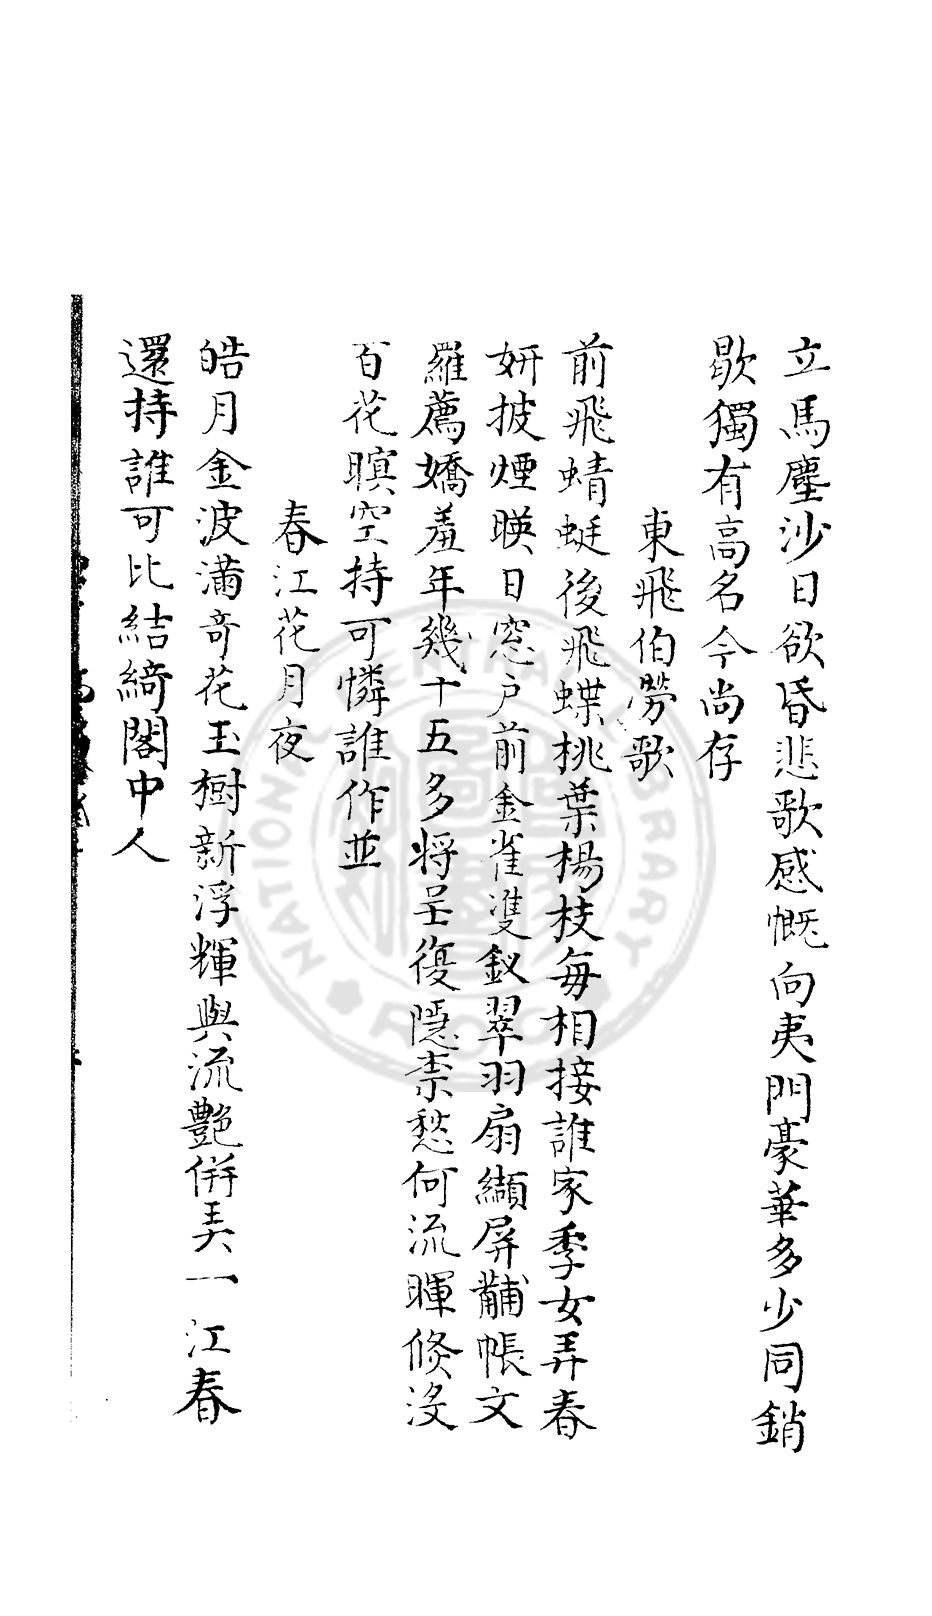 立馬塵沙日欲昏悲歌感慨向夷門豪華多少同銷
歇獨有高名今尚存
東飛伯勞歌
前飛蜻蜓後飛蝶桃葉楊枝每相接誰家季女弄春
妍披煙暎日窓戶前金雀雙釵翠羽扇纈屏黼帳文
羅薦嬌羞年幾十五多將呈復隱柰愁何流暉倐沒
百花暝空持可憐誰作並
春江花月夜
皓月金波滿奇花玉樹新浮輝與流艷併美一江春
還持誰可比結綺閣中人
NATIONAL CENTRAL LIBRARY